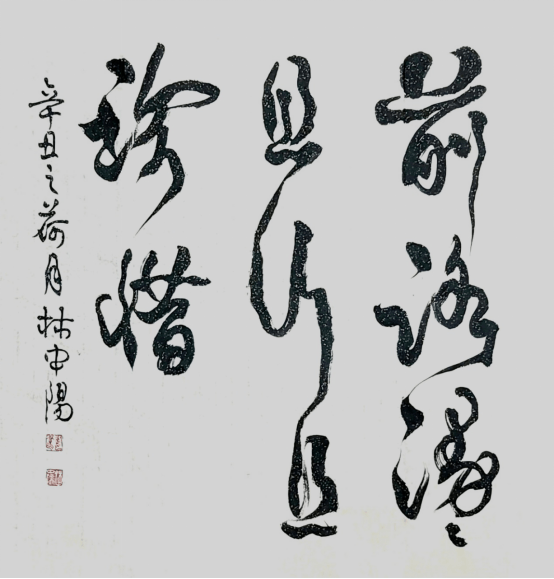 前路漫々
且行且
珍惜
辛丑之荷月林中陽